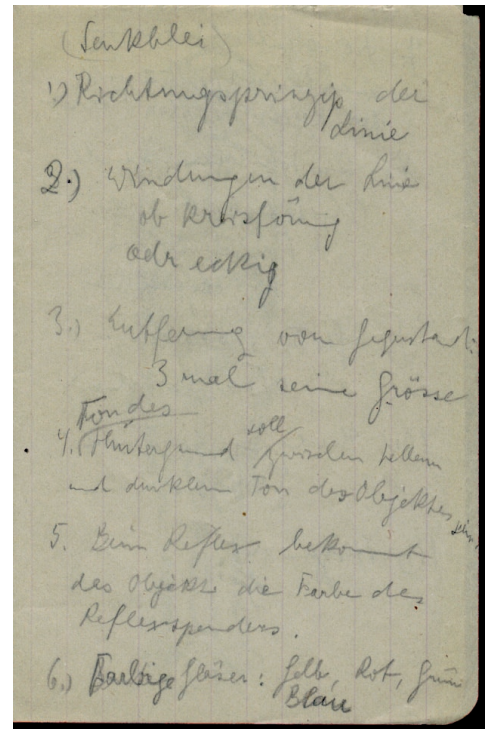 (Senkblei)
1.) Richtungsprinzip der
Linie
2.) Windungen der Linie
ob kreisförmig
oder eckig
3.) Entfernung vom Gegenstand:
3 mal seine Grösse
Ton des
4. Hintergrund soll zwischen hellem
und dunklem Ton des Objektes sein.
5. Beim Reflex bekommt
das Objekt die Farbe des
Reflexspenders.
6.) Farbige Gläser: Gelb, Rot, Grün
Blau